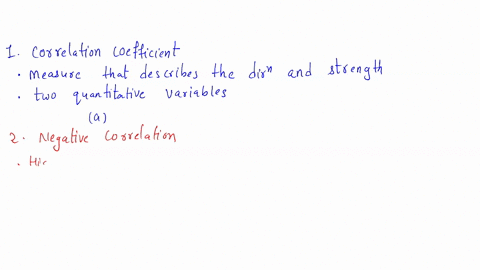 1. Correlation coefficient
• Measure that describes the dirⁿ and strength
• two quantitative variables
(a)
2. Negative Correlation
• Hi